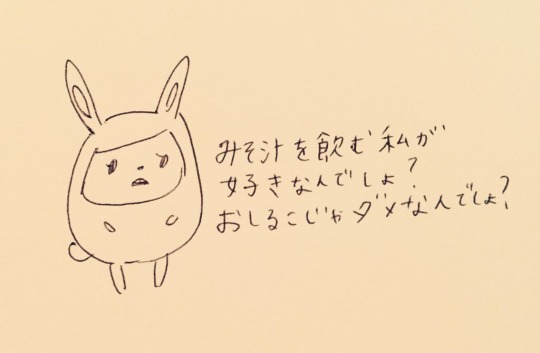 みそ汁を飲む私が
好きなんでしょ?
おしるこじゃダメなんでしょ?